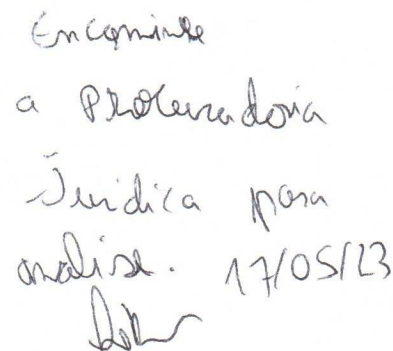 Encaminhe
a Procuradoria
Jurídica para
analise. 17/05/23